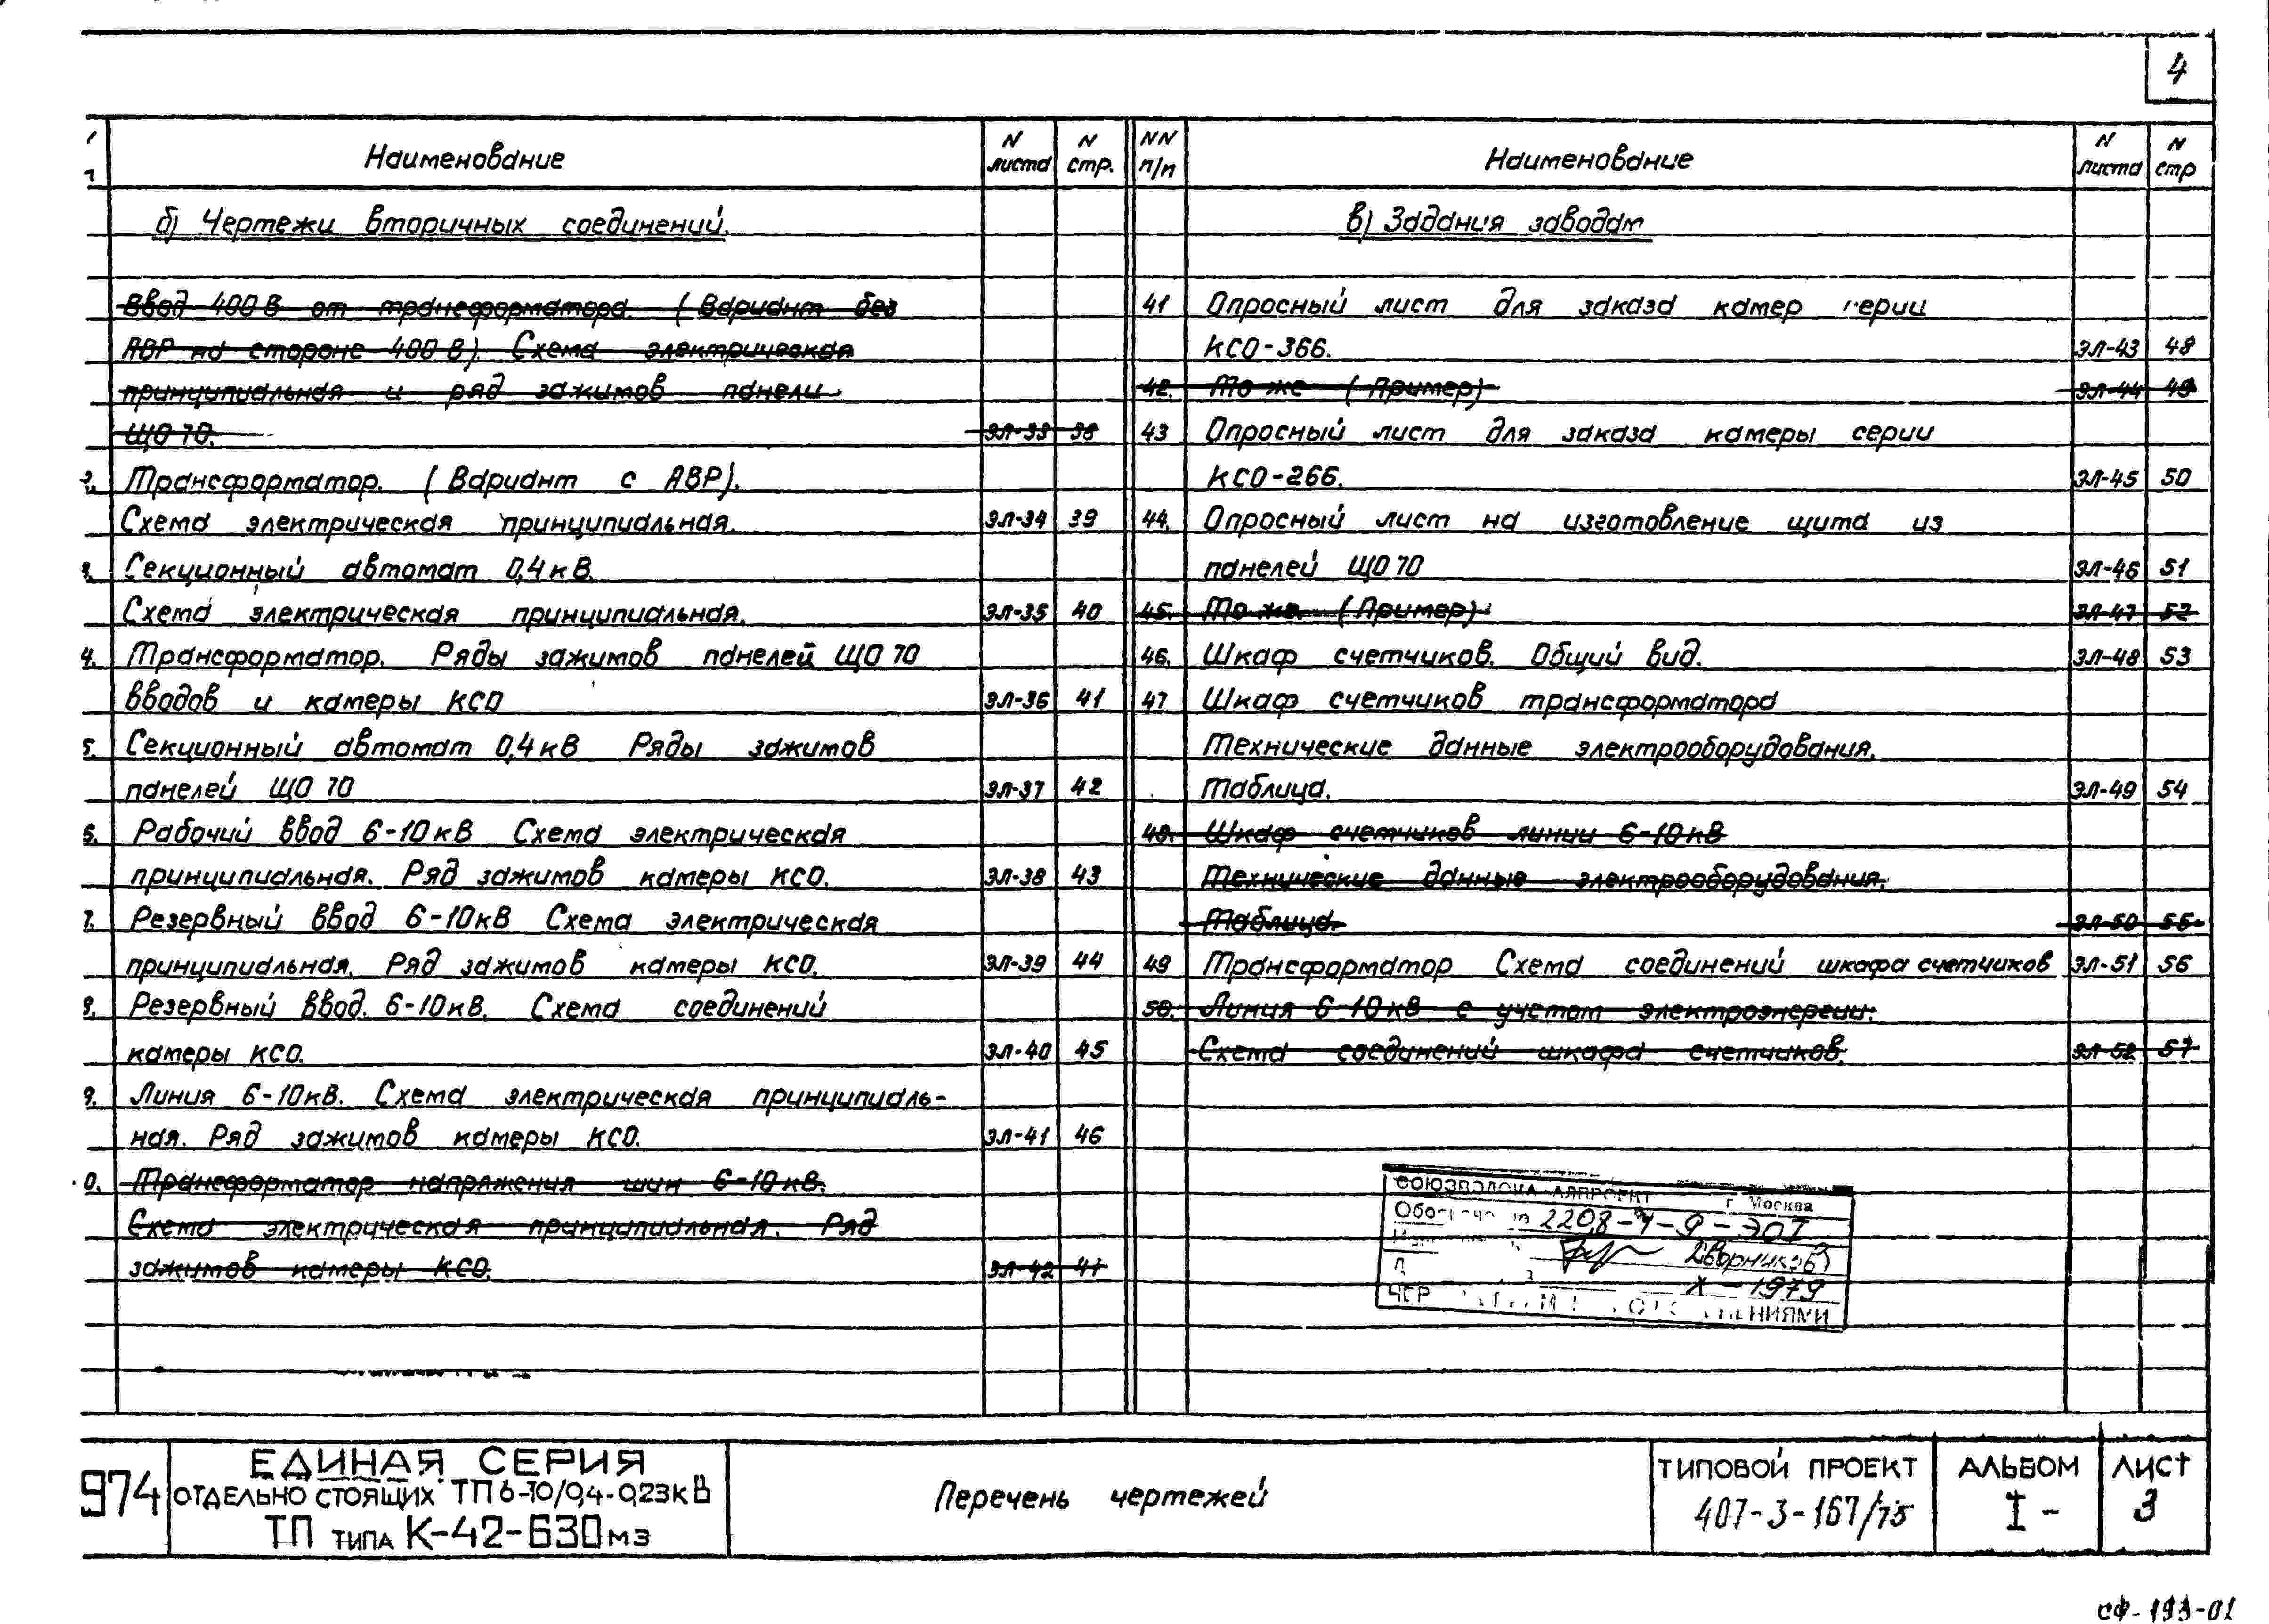 4
Наименование
N листа
N стр.
б) Чертежи вторичных соединений.
Ввод 400 В от трансформатора. (Вариант без
АВР на стороне 400 В). Схема электрическая
принципиальная и ряд зажимов панели
ЩО 70. ЭЛ-33 38
Трансформатор. (Вариант с АВР).
Схема электрическая принципиальная. ЭЛ-34 39
Секционный автомат 0,4 кВ.
Схема электрическая принципиальная. ЭЛ-35 40
4. Трансформатор. Ряды зажимов панелей ЩО 70
вводов и камеры КСО ЭЛ-36 41
5. Секционный автомат 0,4 кВ Ряды зажимов
панелей ЩО 70 ЭЛ-37 42
6. Рабочий ввод 6-10 кВ Схема электрическая
принципиальная. Ряд зажимов камеры КСО. ЭЛ-38 43
7. Резервный ввод 6-10 кВ Схема электрическая
принципиальная. Ряд зажимов камеры КСО. ЭЛ-39 44
8. Резервный ввод. 6-10 кВ. Схема соединений
камеры КСО. ЭЛ-40 45
9. Линия 6-10 кВ. Схема электрическая принципиаль-
ная. Ряд зажимов камеры КСО. ЭЛ-41 46
0. Трансформатор напряжения шин 6-10 кВ.
Схема электрическая принципиальная. Ряд
зажимов камеры КСО. ЭЛ-42 47
NN п/п
Наименование
N листа
N стр
в) Задания заводам
41 Опросный лист для заказа камер серии
КСО-366. ЭЛ-43 48
42. То же (Пример) ЭЛ-44 49
43 Опросный лист для заказа камеры серии
КСО-266. ЭЛ-45 50
44. Опросный лист на изготовление щита из
панелей ЩО 70 ЭЛ-46 51
45. То же. (Пример) ЭЛ-47 52
46. Шкаф счетчиков. Общий вид. ЭЛ-48 53
47 Шкаф счетчиков трансформатора
Технические данные электрооборудования.
Таблица. ЭЛ-49 54
48. Шкаф счетчиков линии 6-10 кВ
Технические данные электрооборудования.
Таблица. ЭЛ-50 55
49 Трансформатор Схема соединений шкафа счетчиков ЭЛ-51 56
50. Линия 6-10 кВ с учетом электроэнергии.
Схема соединений шкафа счетчиков. ЭЛ-52 57
г. Москва
Дворников
X - 1979
974
ЕДИНАЯ СЕРИЯ
ОТДЕЛЬНО СТОЯЩИХ ТП 6-10/0,4-0,23 кВ
ТП ТИПА К-42-630 МЗ
Перечень чертежей
ТИПОВОЙ ПРОЕКТ
407-3-167/75
АЛЬБОМ
I -
ЛИСТ
3
СФ-193-01